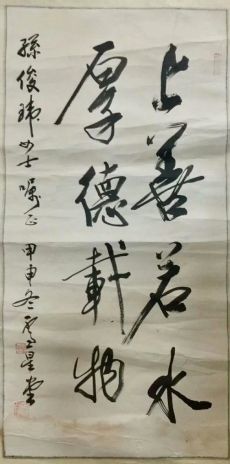 上善若水
厚德載物
孫俊瑋女士囑正 甲申冬